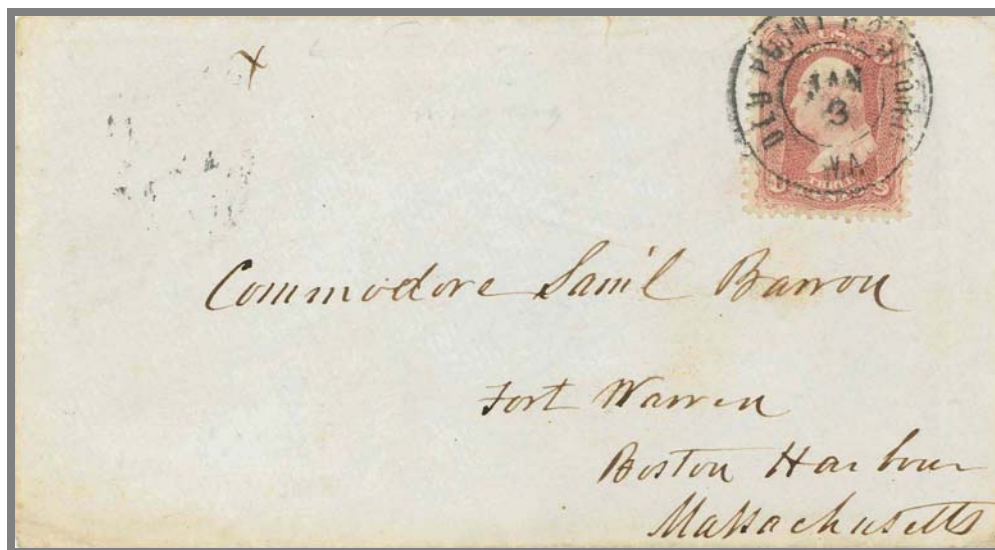 OLD POINT COMFORT
JAN
3
VA.
U S
THREE
Commodore Sam'l Barron
Fort Warren
Boston Harbour
Massachusetts